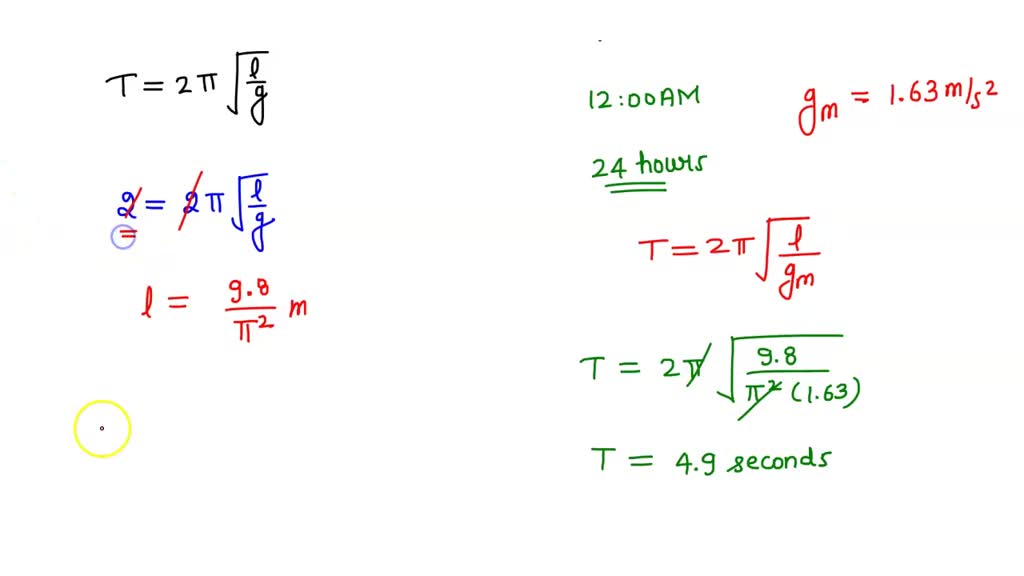 T = 2π √(l/g)
2 = 2π √(l/g)
l = 9.8/π² m
12:00AM
gm = 1.63 m/s²
24 hours
T = 2π √(l/gm)
T = 2π √(9.8/π² (1.63))
T = 4.9 seconds